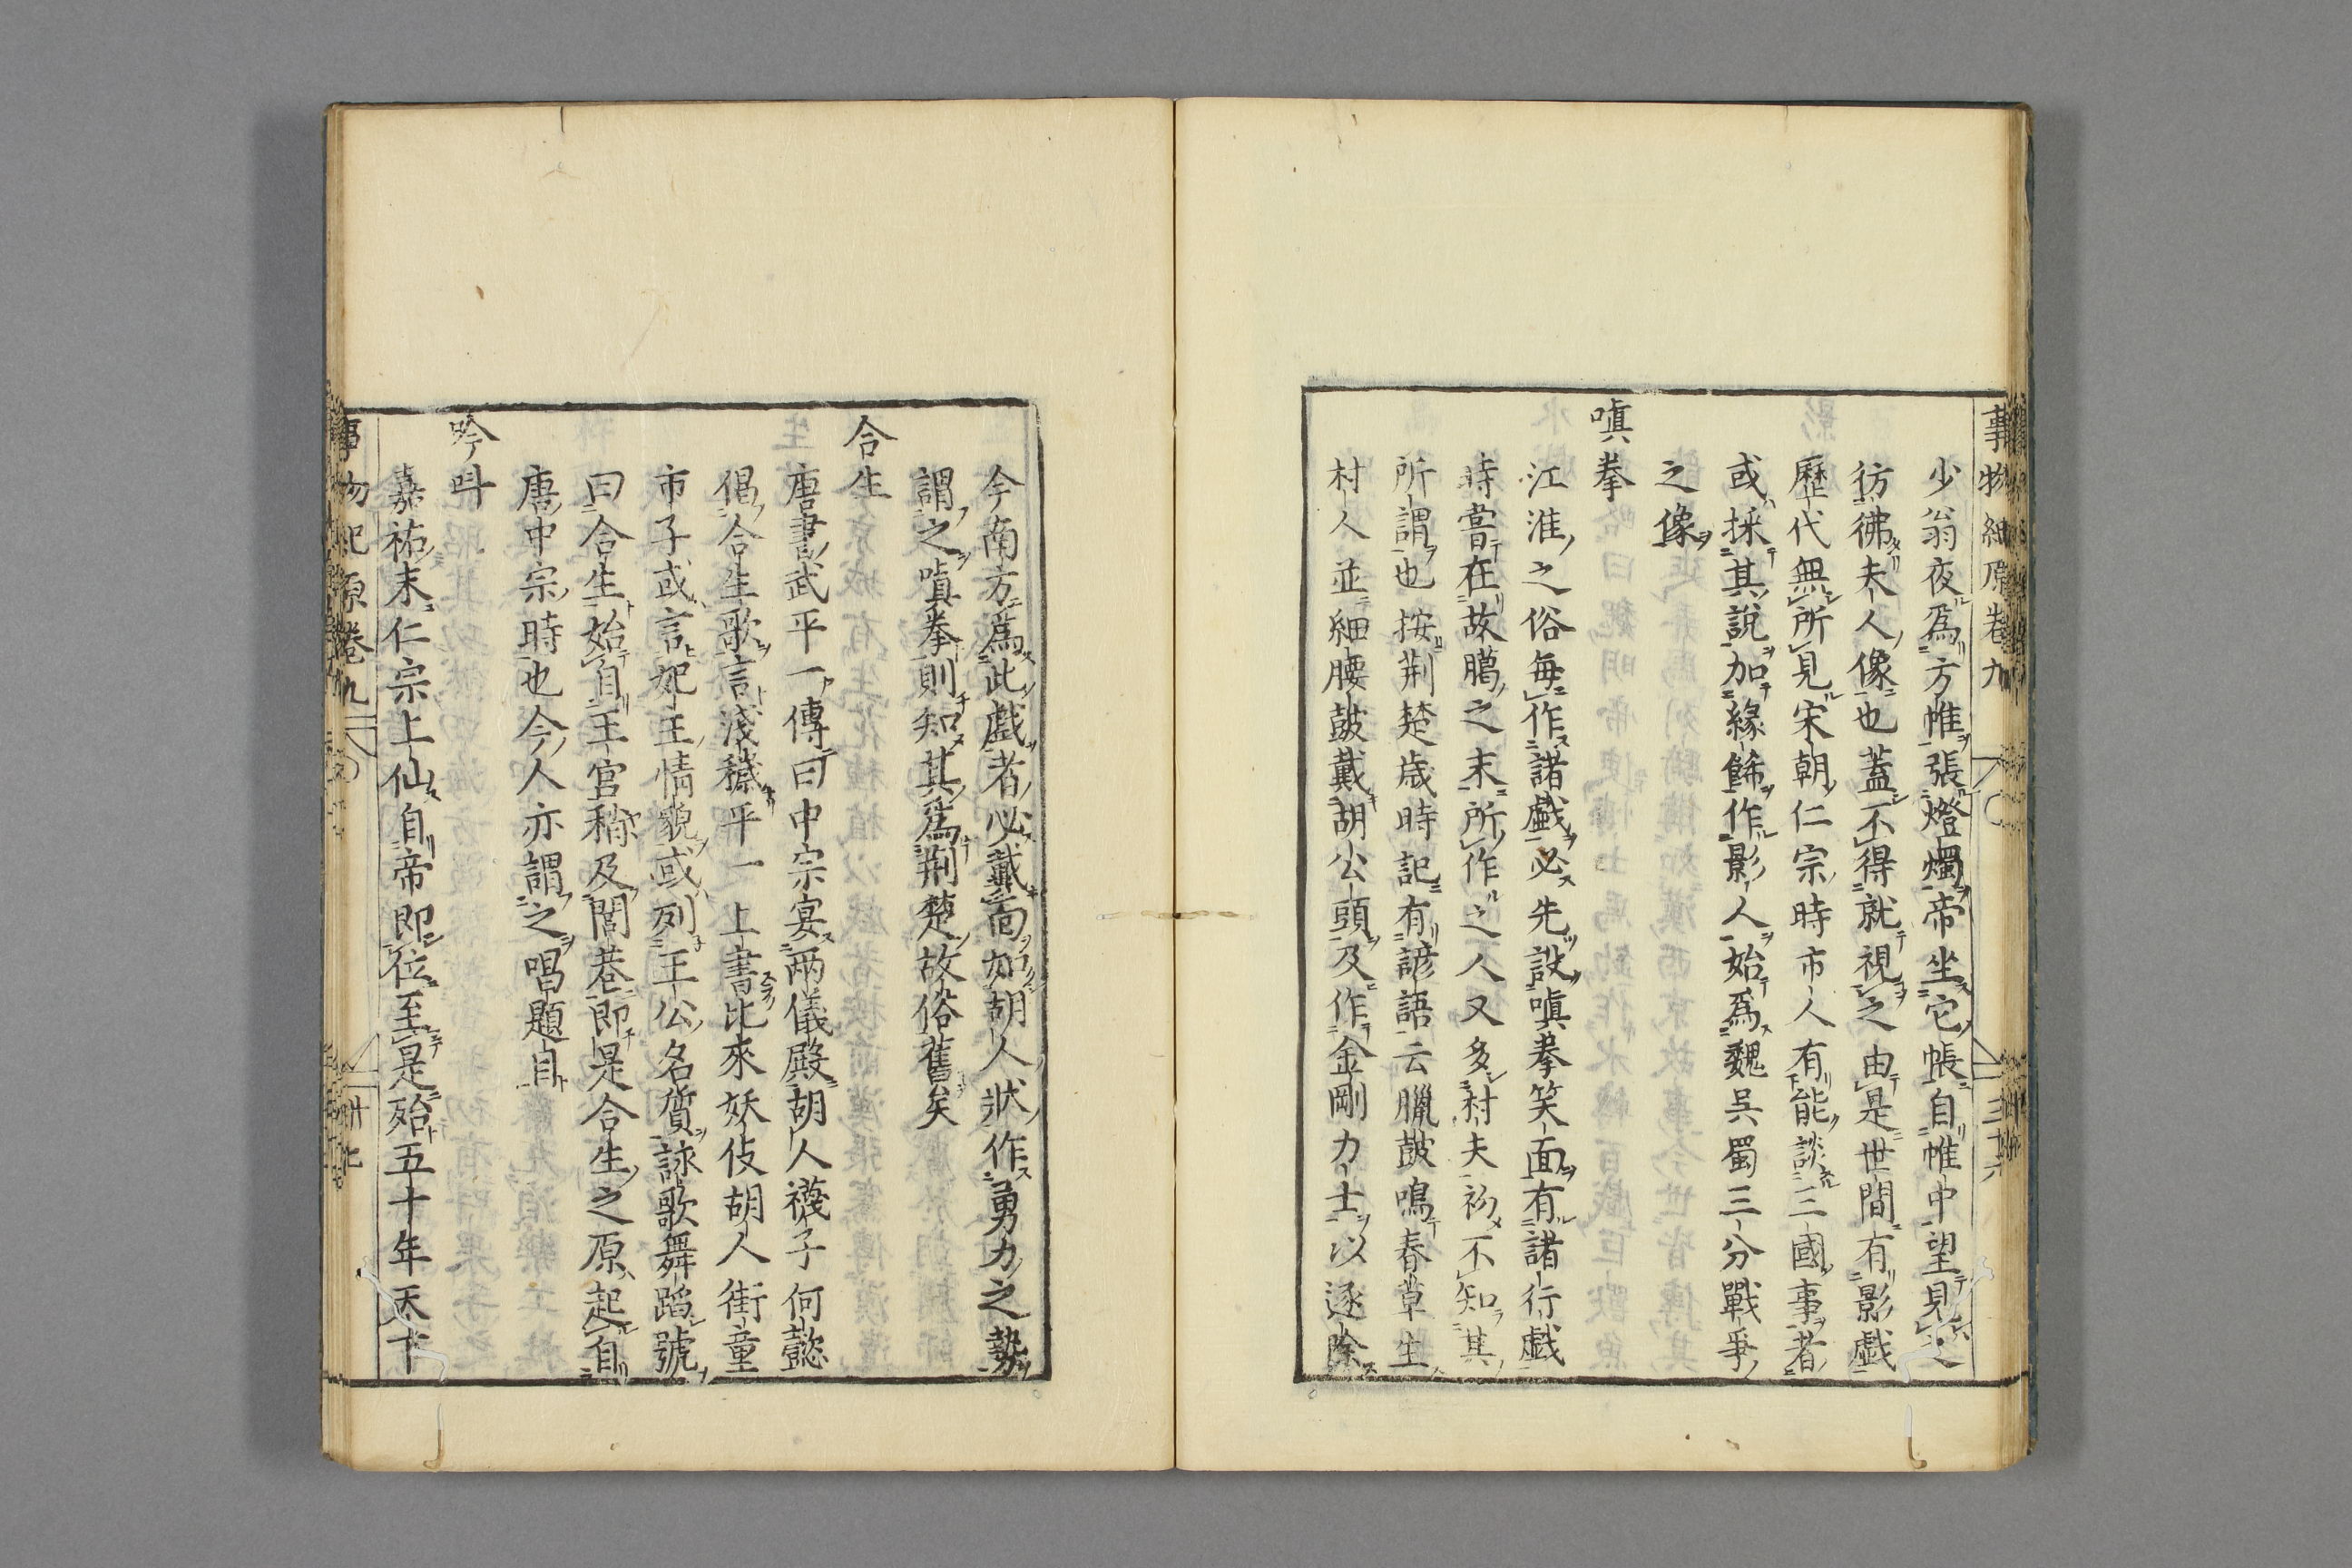 事物紀原卷九 三十六
少翁夜爲方帷張燈燭帝坐它帳自帷中望見之
彷彿夫人像也蓋不得就視之由是世間有影戲
歷代無所見宋朝仁宗時市人有能談三國事者
或採其說加緣飾作影人始爲魏吳蜀三分戰爭
之像
嗔拳
江淮之俗每作諸戲必先設嗔拳笑面有諸行戲
時嘗在故臈之末所作之人又多村夫初不知其
所謂也按荊楚歲時記有諺語云臘鼓鳴春草生
村人並細腰鼓戴胡公頭及作金剛力士以逐除
今南方爲此戲者必戴面如胡人狀作勇力之勢
謂之嗔拳則知其爲荊楚故俗舊矣
合生
唐書武平一傳曰中宗宴兩儀殿胡人襪子何懿
倡合生歌言淺穢平一上書比來妖伎胡人街童
市子或言妃主情貌或列王公名質詠歌舞蹈號
曰合生始自王宮稍及閭巷即是合生之原起自
唐中宗時也今人亦謂之唱題目
吟叫
嘉祐末仁宗上仙自帝即位至是殆五十年天下
事物紀原卷九 卅七